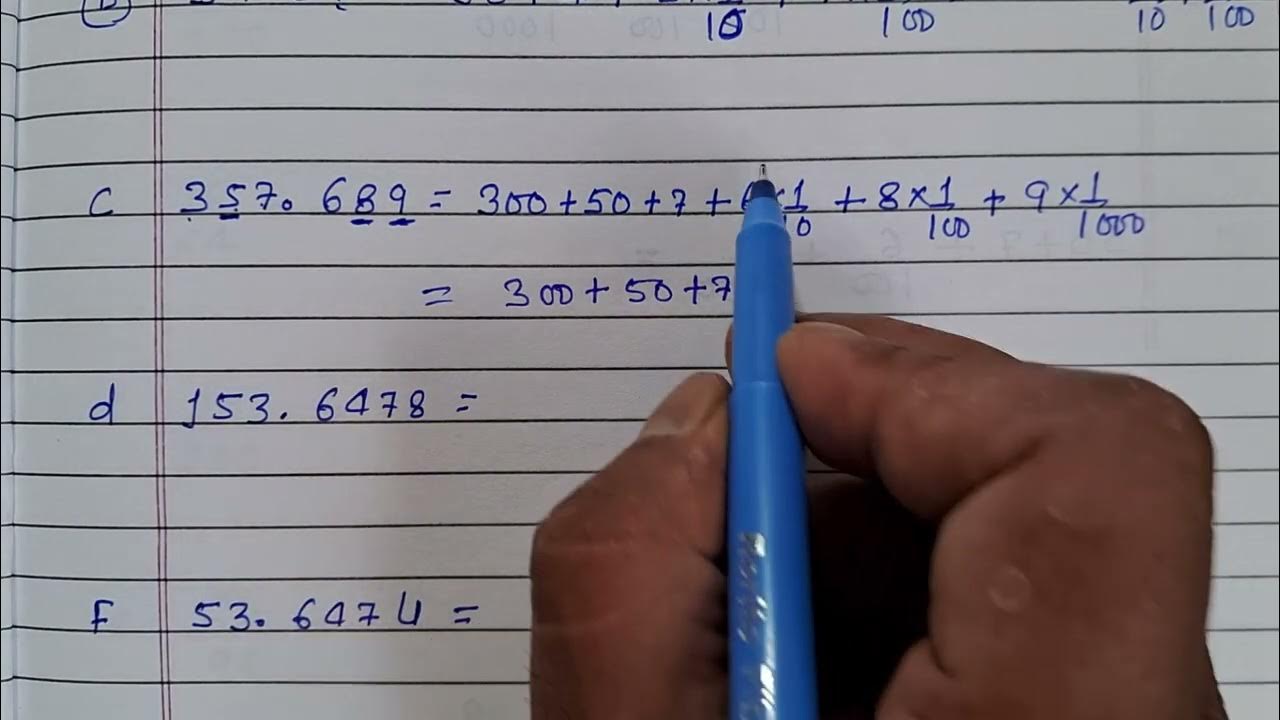 10 100 10 100
c 357.689 = 300+50+7+6×1/10 +8×1/100 + 9×1/1000
= 300+50+7
d 153.6478 =
F 53.6474 =